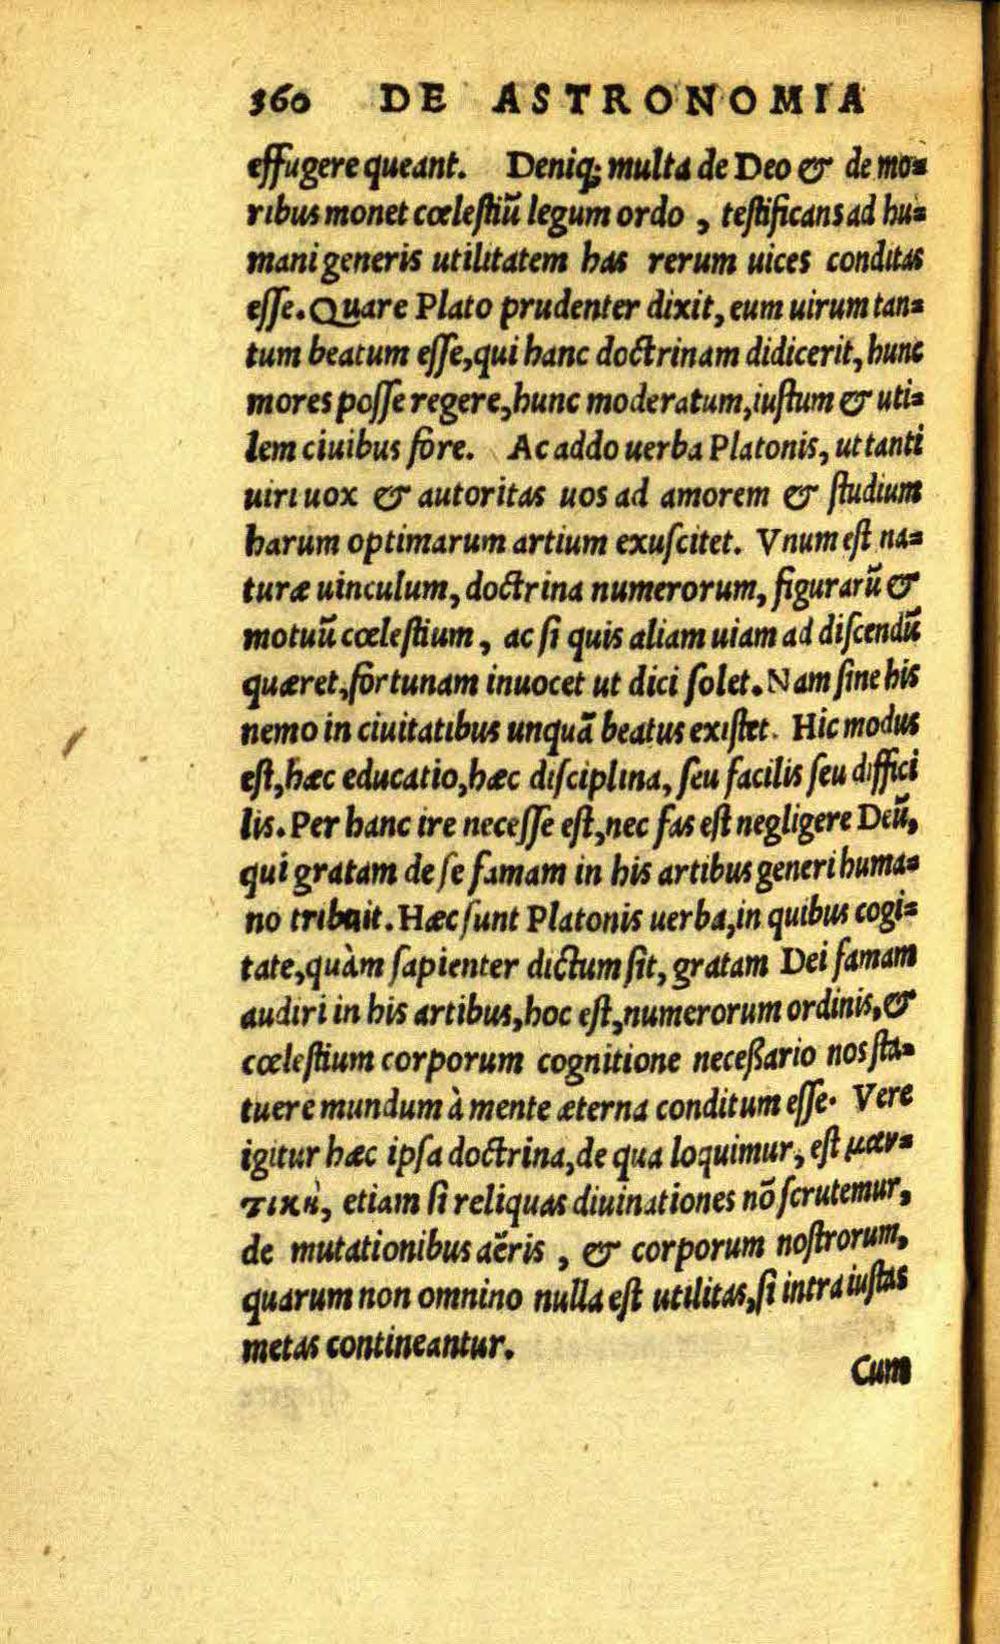 360 DE ASTRONOMIA
effugere queant. Deniq; multa de Deo & de mo=
ribus monet cœleſtiũ legum ordo , teſtificans ad hu=
mani generis utilitatem has rerum uices conditas
eſſe. Quare Plato prudenter dixit, eum uirum tan=
tum beatum eſſe, qui hanc doctrinam didicerit, hunc
mores poſſe regere, hunc moderatum, iuſtum & uti=
lem ciuibus fore. Ac addo uerba Platonis, ut tanti
uiri uox & autoritas uos ad amorem & ſtudium
harum optimarum artium exuſcitet. Vnum eſt na=
turæ uinculum, doctrina numerorum, figurarũ &
motuũ cœleſtium , ac ſi quis aliam uiam ad diſcendũ
quæret, fortunam inuocet ut dici ſolet. Nam ſine his
nemo in ciuitatibus unquã beatus exiſtet. Hic modus
eſt, hæc educatio, hæc diſciplina, ſeu facilis ſeu diffici
lis. Per hanc ire neceſſe eſt, nec fas eſt negligere Deũ,
qui gratam de ſe famam in his artibus generi huma=
no tribuit. Hæc ſunt Platonis uerba, in quibus cogi=
tate, quàm ſapienter dictum ſit, gratam Dei famam
audiri in his artibus, hoc eſt, numerorum ordinis, &
cœleſtium corporum cognitione neceßario nos ſta=
tuere mundum à mente æterna conditum eſſe. Vere
igitur hæc ipſa doctrina, de qua loquimur, eſt μαν=
τικὴ, etiam ſi reliquas diuinationes nõ ſcrutemur,
de mutationibus aëris , & corporum noſtrorum,
quarum non omnino nulla eſt utilitas, ſi intra iuſtas
metas contineantur.
Cum